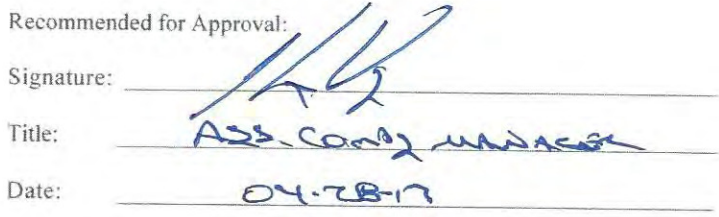 Recommended for Approval:
Signature:
Title: ASS. County MANAGER
Date: 04-28-17